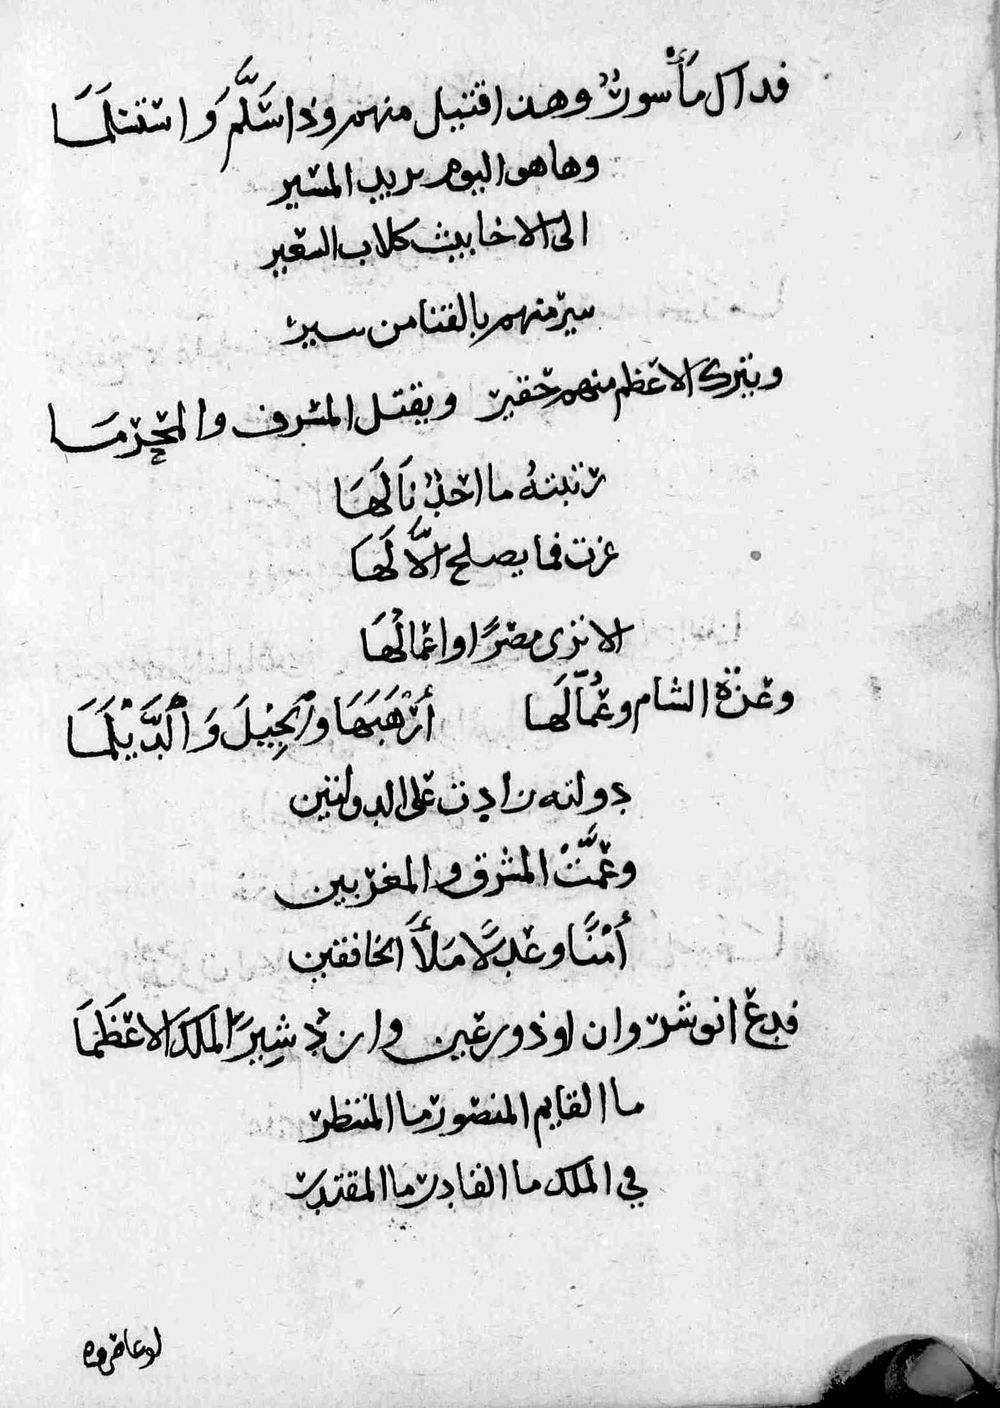 فداك مأسورٌ وهذا قتيل منهم وذا سَلَّم وَاستسلَمَا
وها هو اليوم يريد المسير
الى الاخابيث كلاب السعير
سير منهم بالقنا من يسير
ويترك الاعظم منهم حقير ويقتل المشرف والمحرمَا
رتبته ما احدٌ نَالَهَا
عزت فما يصلح الَّا لَهَا
الا ترى مصرًا واعمالَهَا
وغزة الشام وعُمَّالَها أَرْهَبَهَا والْجِيْلَ وَالْدَّيْلَمَا
دولته زادت على الدولتين
وعمَّتْ المشرق والمغربين
أَمْنًا وعدلًا مَلأَ الخافقين
فدع انوشروان او ذورعين وازدشيرَ الملك الاعظَمَا
ما القايم المنصور ما المنتظر
في الملك ما القادر ما المقتدر
لو عاصروه